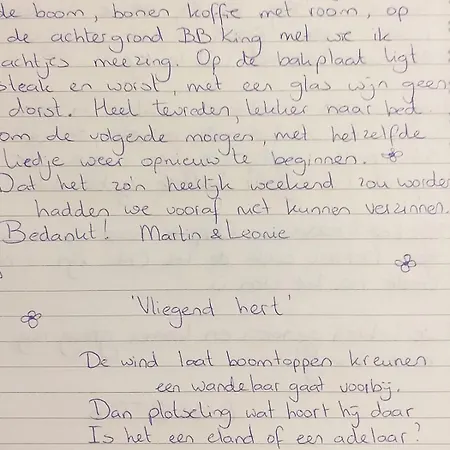 de boom, bonen koffie met room, op
de achtergrond BB King met we ik
achtjes meezing. Op de bakplaat ligt
steak en worst, met een glas wijn geen
dorst. Heel tevreden, lekker naar bed
om de volgende morgen, met hetzelfde
liedje weer opnieuw te beginnen.
Dat het zo'n heerlijk weekend zou worden
hadden we vooraf niet kunnen verzinnen.
Bedankt! Martin & Leonie
'Vliegend hert'
De wind laat boomtoppen kreunen
een wandelaar gaat voorbij.
Dan plotseling wat hoort hij daar
Is het een eland of een adelaar?